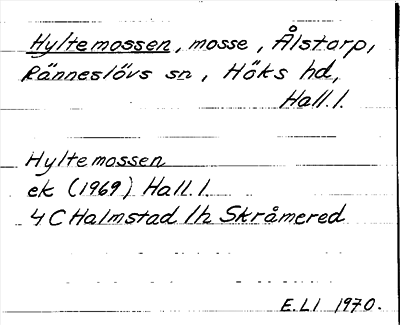 Hyltemossen, mosse, Ålstorp,
Ränneslövs sn, Höks hd,
Hall. l.
Hyltemossen
ek (1969) Hall. l.
4 C Halmstad lh Skråmered
E.LI 1970.